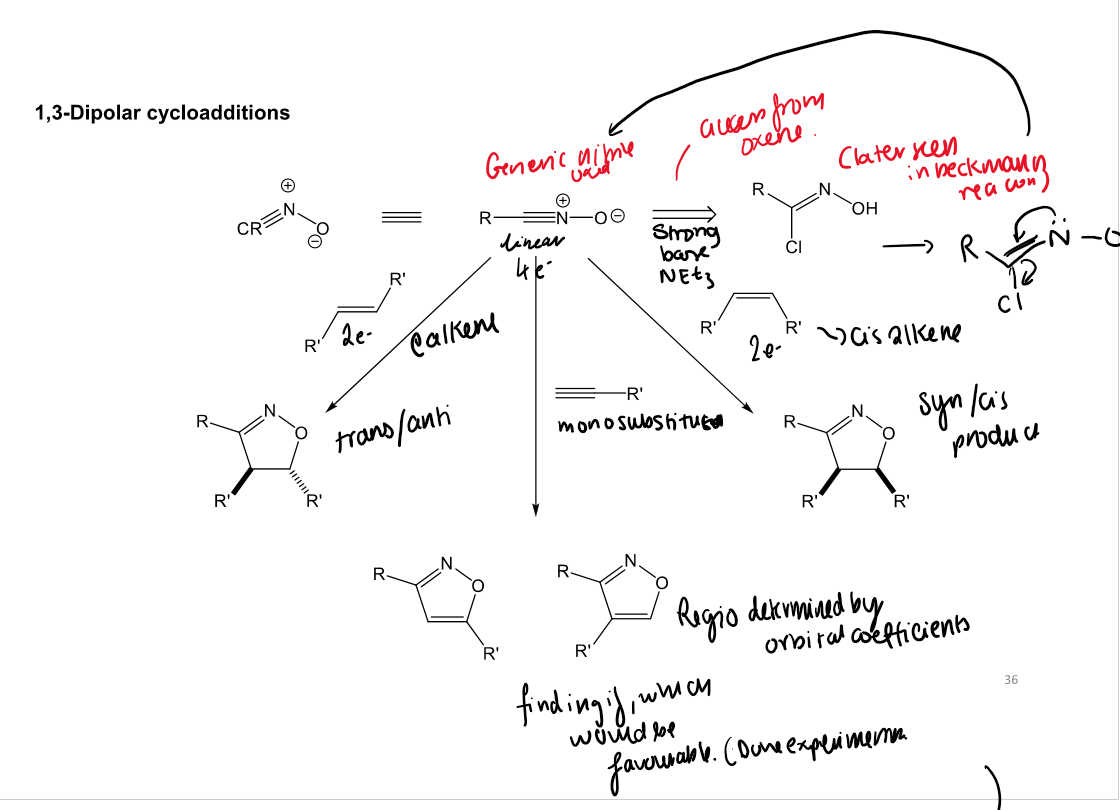 1,3-Dipolar cycloadditions
access from
oxene.
Generic nitrile
oxide
(later seen
in beckmann
rea con)
⊕
CR≡N
O
⊖
≡
R
⊕
N
O⊖
linear
4e-
Strong
base
NEt3
R
N
OH
Cl
R
N-O
Cl
R'
R'
2e-
E alkene
R'
R'
2e-
cis alkene
R'
monosubstituted
R
N
O
R'
R'
trans/anti
R
N
O
R'
R'
syn/cis
product
R
N
O
R'
R
N
O
R'
Regio determined by
orbital coefficients
finding if, which
would be
favourable. (Done experimental
)
36